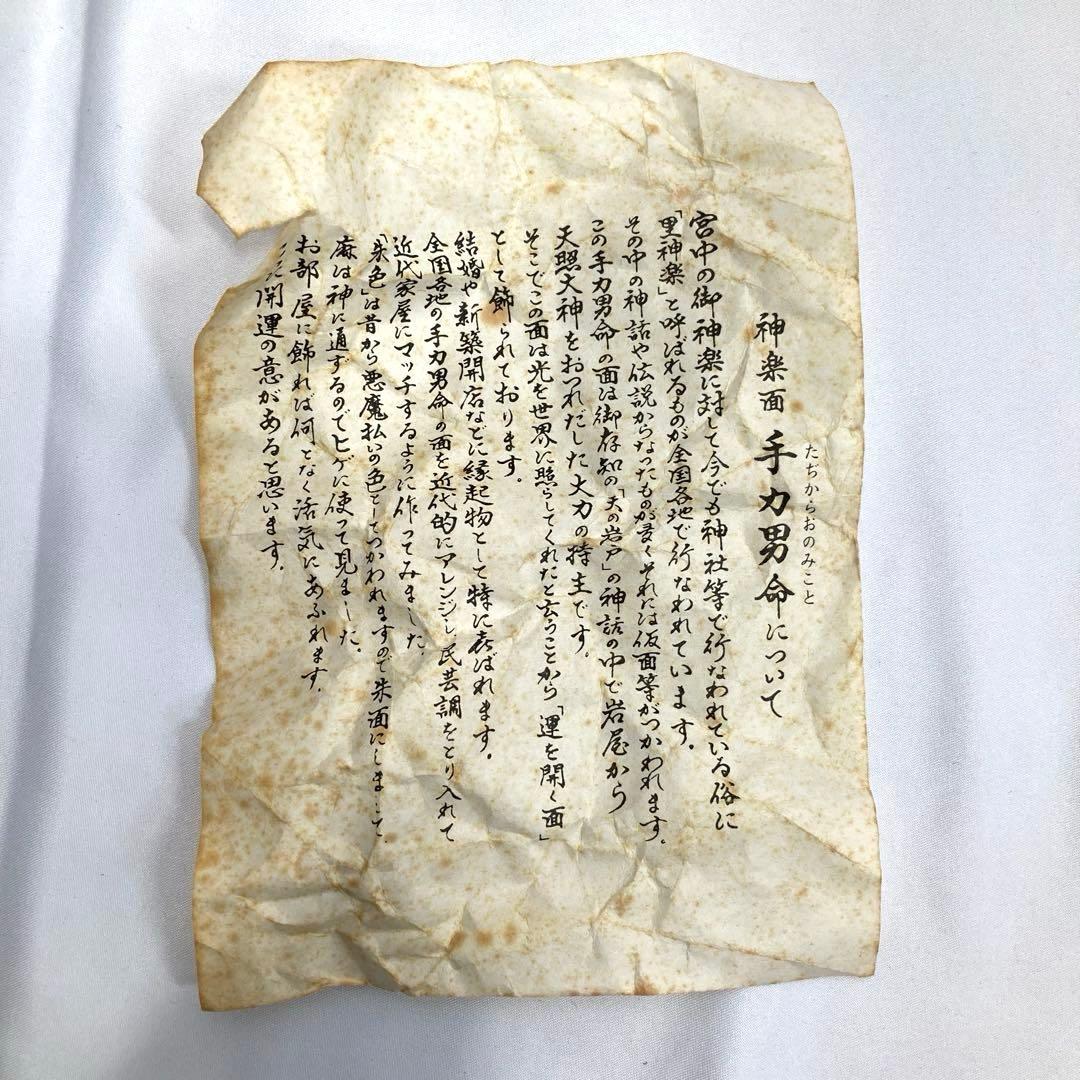 神楽面 手力男命について
たぢからおのみこと
宮中の御神楽に対して今でも神社等で行なわれている俗に
「里神楽」と呼ばれるものが全国各地で行なわれています。
その中の神話や伝説からなったものが多くそれには仮面等がつかわれます。
この手力男命の面は御存知の「天の岩戸」の神話の中で岩屋から
天照大神をおつれだした大力の持主です。
そこでこの面は光を世界に照らしてくれたと云うことから「運を開く面」
として飾られております。
結婚や新築開店などに縁起物として特に喜ばれます。
全国各地の手力男命の面を近代的にアレンジし民芸調をとり入れて
近代家屋にマッチするように作ってみました。
「朱色」は昔から悪魔払いの色としてつかわれますので朱面にしまして
麻は神に通ずるのでヒゲに使って見ました。
お部屋に飾れば何となく活気にあふれます。
開運の意があると思います。